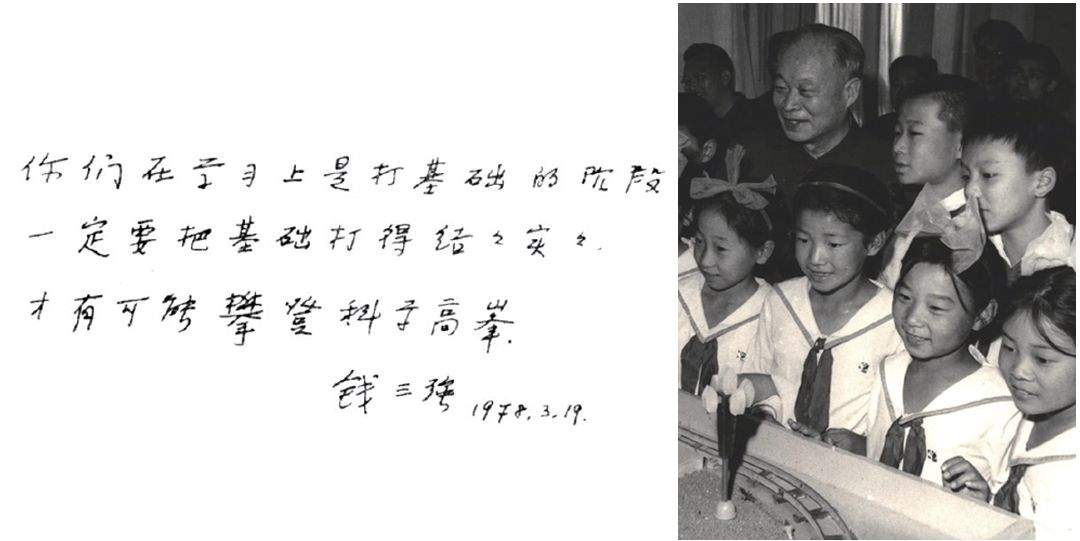 你们在学习上是打基础的阶段
一定要把基础打得结々实々.
才有可能攀登科学高峯.
钱三强 1978.3.19.